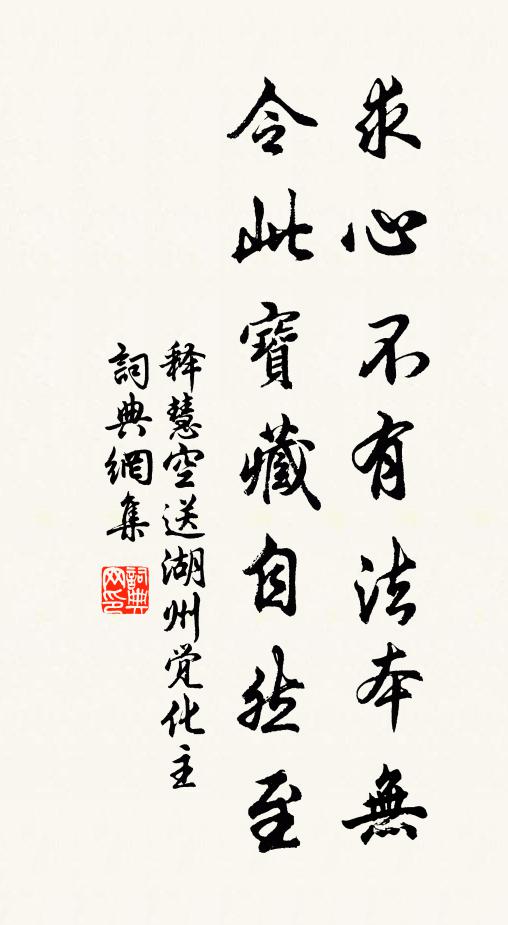 求心不有法本無
令此寶藏自然至
释慧空送湖州觉化主
詞典網集
詞典网印